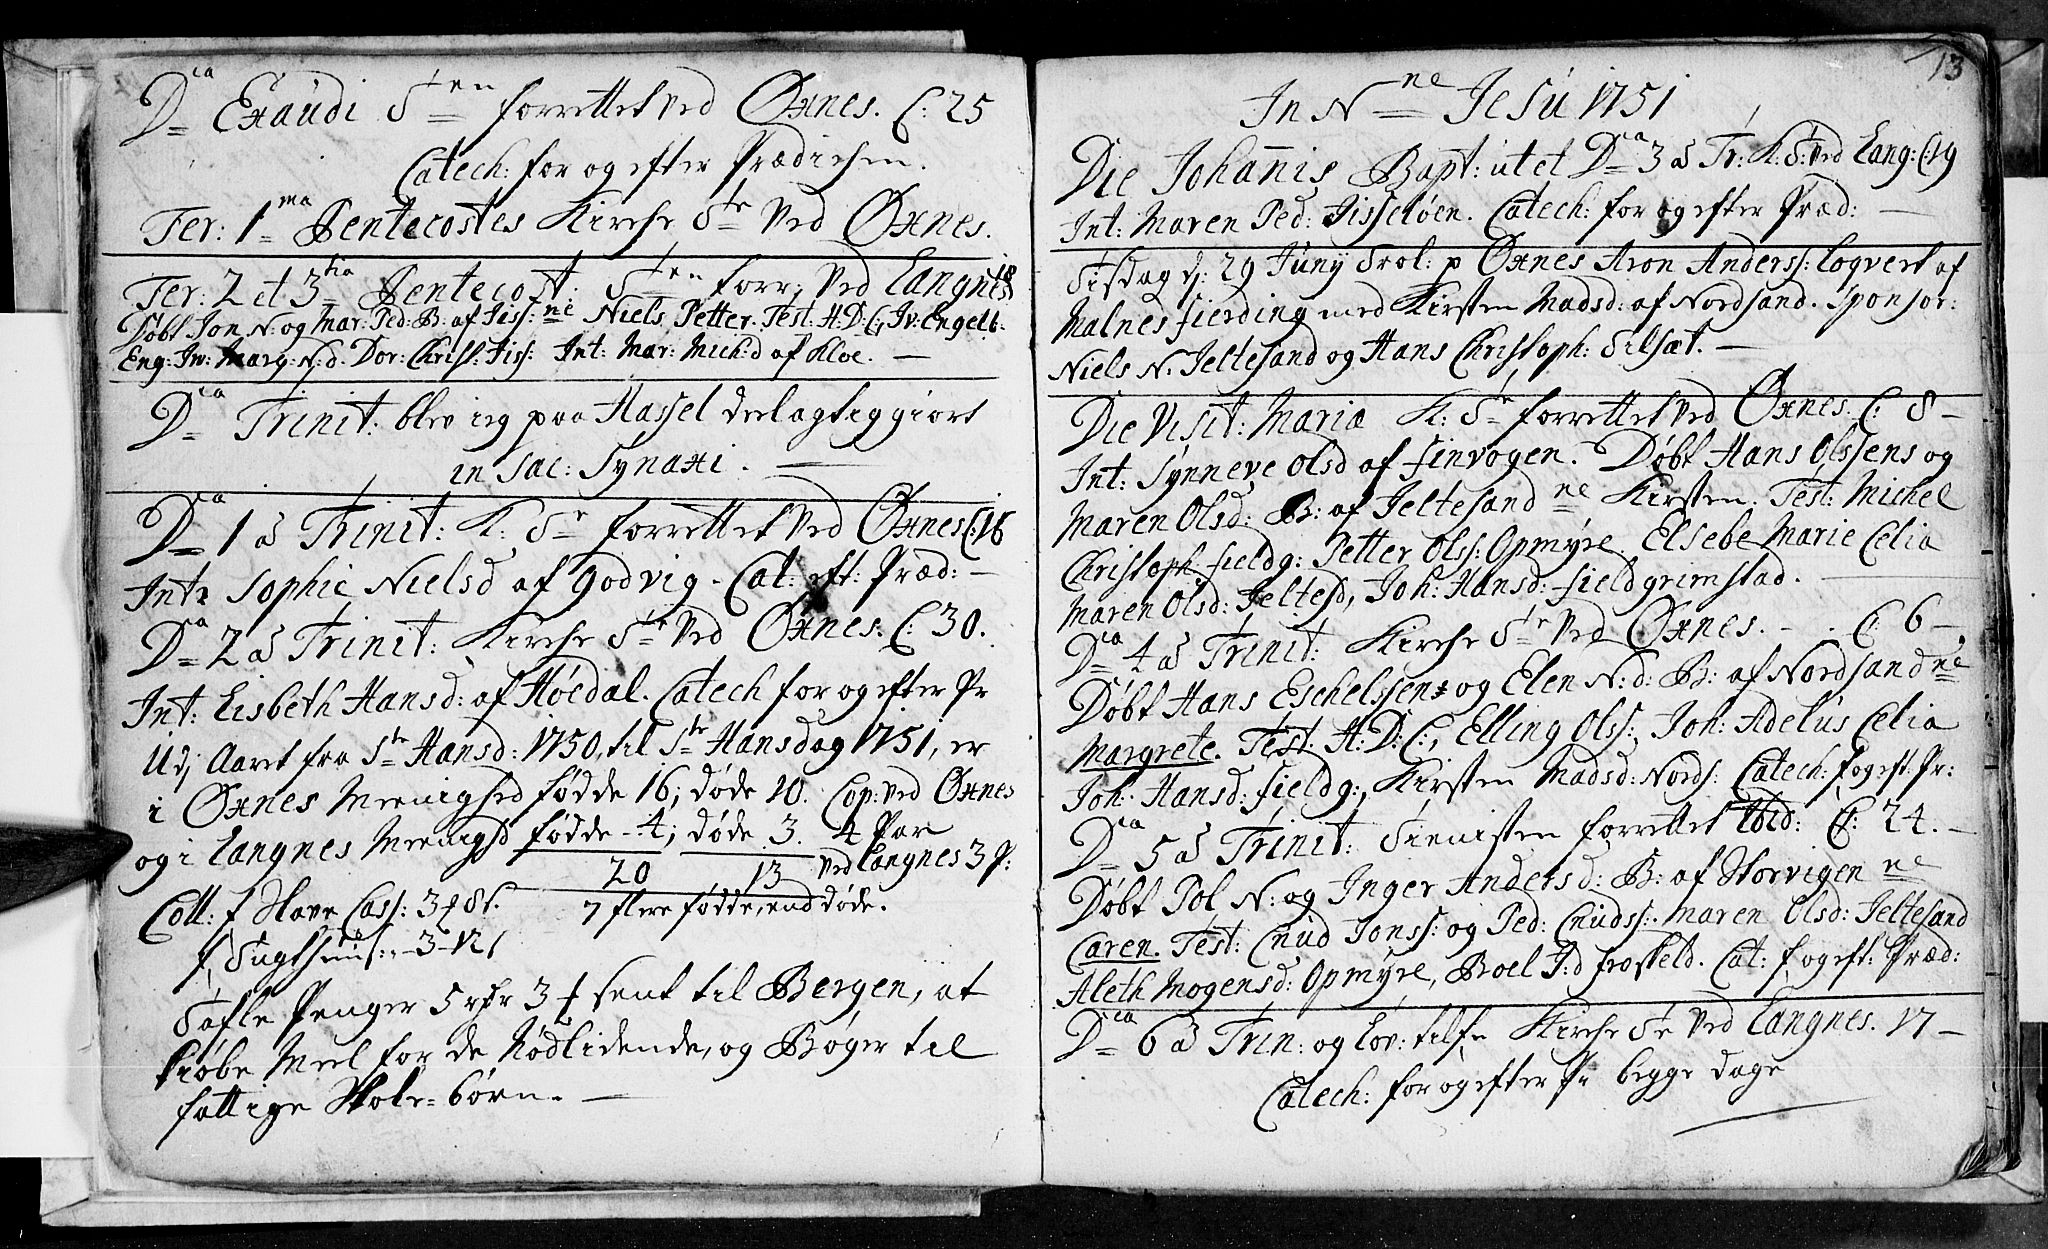 D<sup>ca</sup> Exaudi S<sup>ten</sup> forrettet ved Øxnes. C: 25
Catech: for og efter Prædichen.
Fer: 1<sup>ma</sup> Pentecostes Kirche Ste ved Øxnes.
Fer: 2 et 3<sup>tia</sup> Pentecost: S<sup>ten</sup> forr: ved Langnes 18
Døbt Jon N: og Mar: Ped: B: af Tiss: ne Niels Petter. Test: H: D: C; Iv: Engelb:
Eng: Iv: Marg: N: d. Dor: Christ: Tiss: Int: Mar: Mich: d af Kloe. —
D<sup>ca</sup> Trinit: blev ieg paa Hassel deelagtiggiort
in Sac: Synaxi. —
D<sup>ca</sup> 1 a Trinit: K: Ste forrettet ved Øxnes C: 16
Int: Sophie Nielsd af Godvig - Cat: eft: Præd: —
D<sup>ca</sup> 2 a Trinit: Kirche Ste ved Øxnes. C: 30.
Int: Lisbeth Hansd: af Høedal. Catech for og efter Pr
Udj Aaret fra Ste Hansd: 1750, til Ste Hansdag 1751, er
i Øxnes Meenighed fødde 16; døde 10. Cop: ved Øxnes
og i Langnes Meenigd fødde - 4; døde 3. 4 Par
20 13 ved Langnes 3 P:
Coll: f Slave Cass: 3 8 s. 7 flere fødde, end døde.
f, Sugthuus:, - 3 - 12 s
Tafle Penger 5 rdr 3 sent til Bergen, at
kiøbe Meel for de Nødlidende, og Bøger til
fattige Skole-børn. —
13
In N<sup>ne</sup> Jesu 1751
Die Johannis Bapt: ut et D<sup>ca</sup> 3 a Tr: K: S: ved Lang: C: 19
Int: Maren Ped: Tisseløen. Catech: for og efter Præd: —
Tisdag d: 29 Juny Trol: p Øxnes Aron Anderss: Logvert af
Malnes fierding med Kirsten Madsd: af Nordsand. Sponsor:
Niels N. Jeltesand og Hans Christoph: Silsæt. —
Die Visit: Mariæ K: Ste forrettet ved Øxnes. C: 8 —
Int: Synneve Olsd af finvogen. Døbt Hans Olssens og
Maren Olsd: B: af Jeltesand ne Kirsten. Test: Michel
Christoph fieldg: Petter Olss: Opmyre. Elsebe Marie Celia
Maren Olsd: Jeltesd, Joh: Hansd: fieldgrimstad. —
D<sup>ca</sup> 4 a Trinit: Kirche Ste ved Øxnes. - . C: 6 —
Døbt Hans Eschelssens og Elen N: d: B: af Nordsand ne
Margrete. Test: H: D: C:, Elling Olss: Joh: Adelus Celia
Joh: Hansd: fieldg:, Kirsten Madsd: Nords: Catech: f og eft: Pr:
D<sup>ca</sup> 5 a Trinit: Tienisten forrettet Ibid: C: 24. —
Døbt Pol N: og Inger Andersd: B: af Skorvigen ne
Caren. Test: Cnud Jonss: og Ped: Cnudss:. Maren Olsd: Jeltesand
Aleth Mogensd: Opmyre, Boel J: d froskeld. Cat: f og eft: Præd:
D<sup>ca</sup> 6 a Trin: og Løv: tilf Kirche Ste ved Langnes. 17 —
Catech: for og efter Pr begge dage